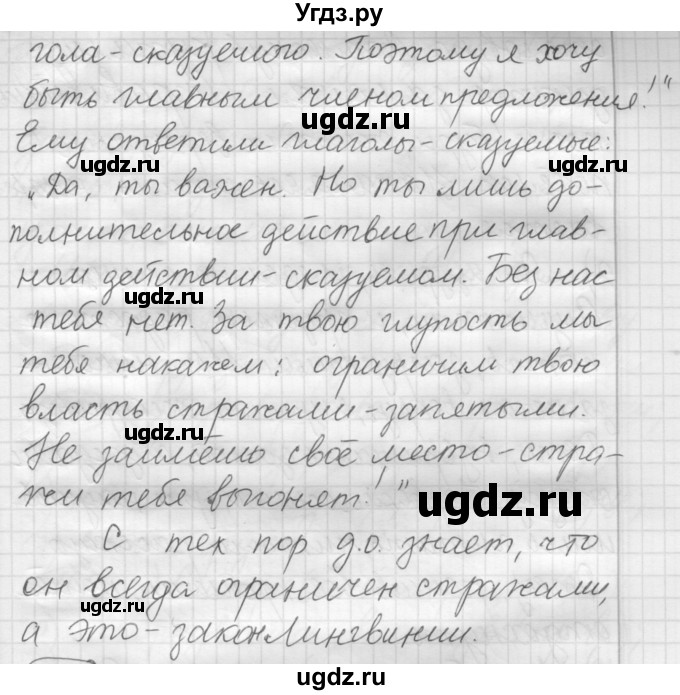 Угдз.ру
гола-сказуемого. Поэтому я хочу
быть главным членом предложения!"
Ему ответили глаголы-сказуемые:
„Да, ты важен. Но ты лишь до-
полнительное действие при глав-
ном действии-сказуемом. Без нас
тебя нет. За твою глупость мы
тебя накажем: ограничим твою
власть стражами-запятыми.
Не займёшь своё место-стра-
жи тебя выгонят!"
С тех пор д.о. знает, что
он всегда ограничен стражами,
а это-закон Лингвинии.
ugdz.ru
ugdz.ru
ugdz.ru
ugdz.ru
ugdz.ru
ugdz.ru
ugdz.ru
ugdz.ru
ugdz.ru